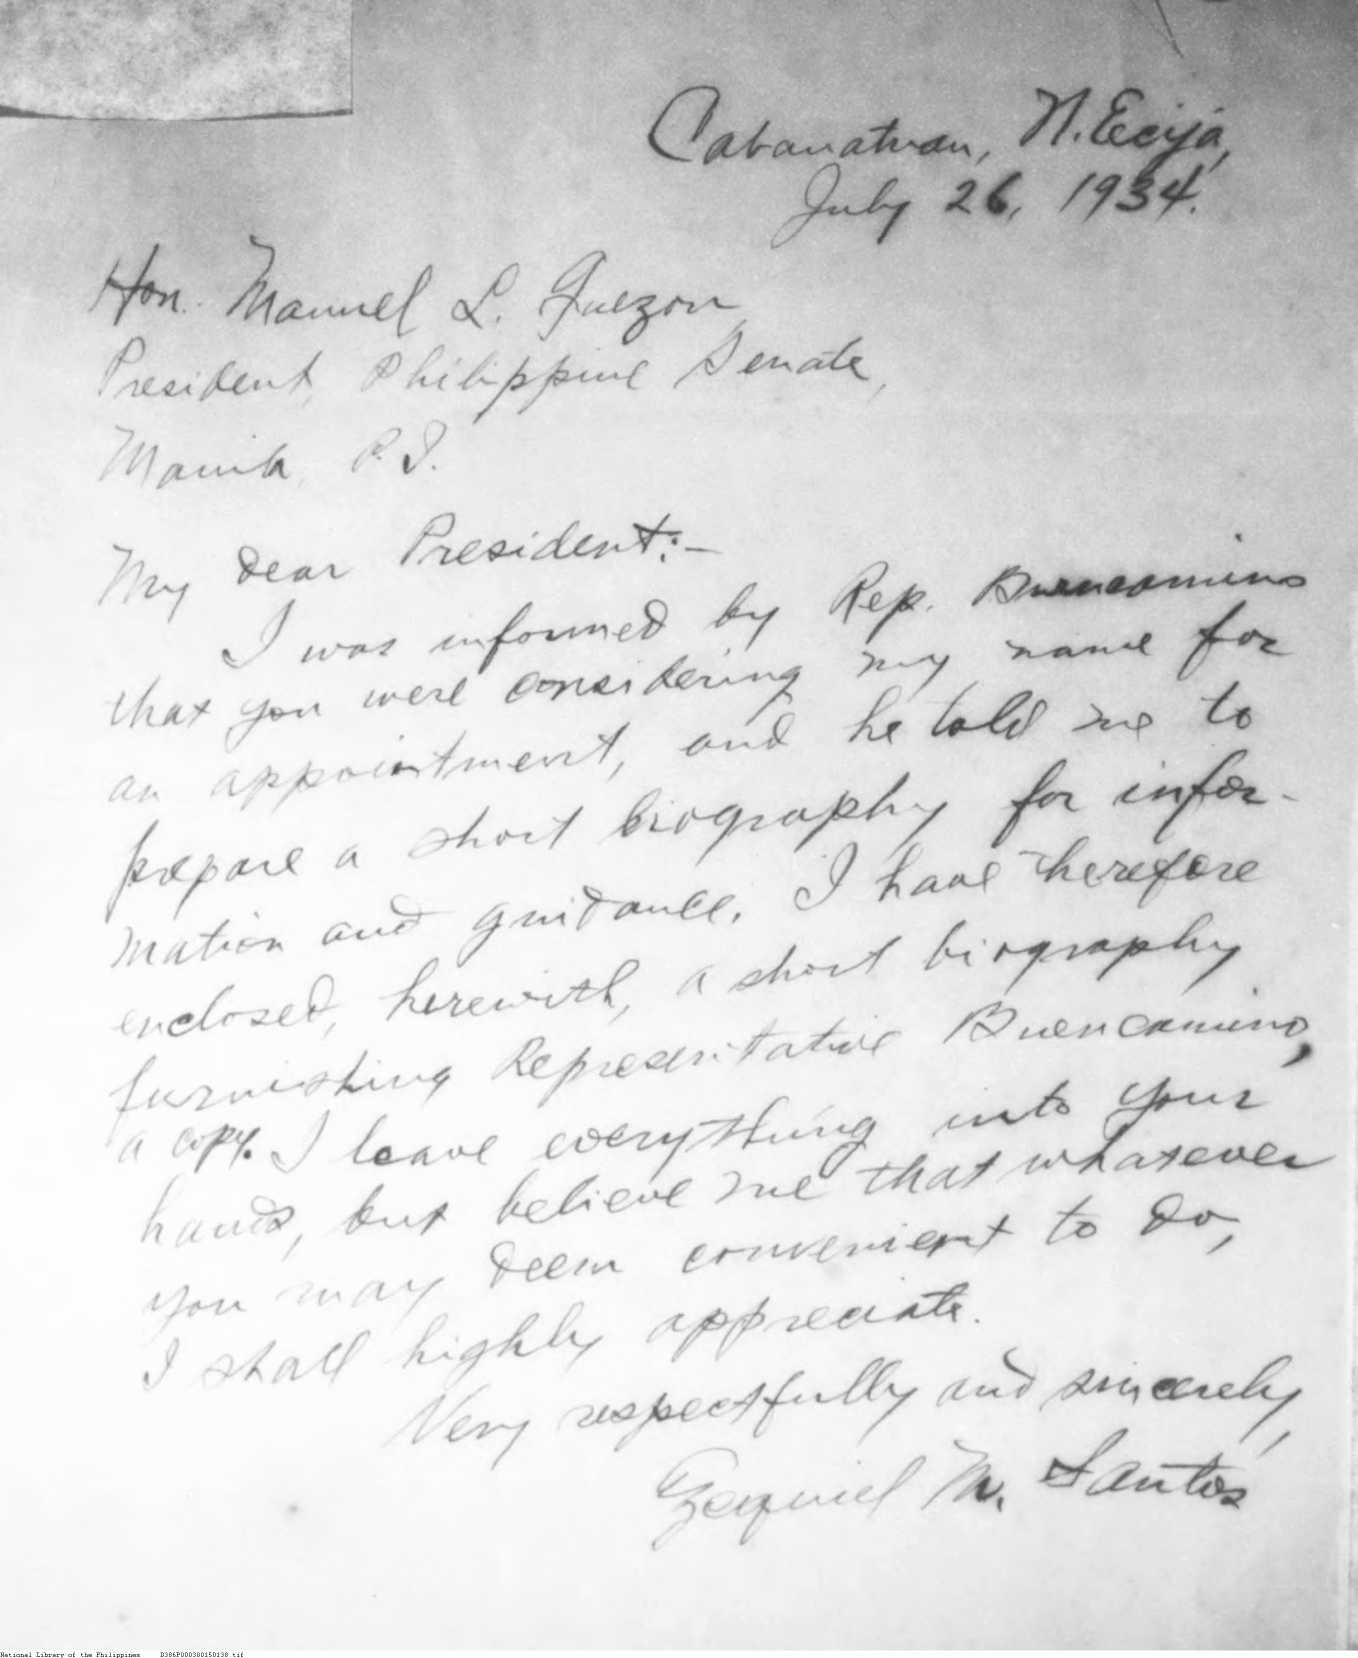 Cabanatuan, N. Ecija,
July 26, 1934.
Hon. Manuel L. Quezon,
President, Philippine Senate,
Manila, P.I.
My dear President:-
I was informed by Rep. Buencamino
that you were considering my name for
an appointment, and he told me to
prepare a short biography for infor-
mation and guidance. I have therefore
enclosed, herewith, a short biography
furnishing Representative Buencamino,
a copy. I leave everything into your
hands, but believe me that whatsoever
you may deem convenient to do,
I shall highly appreciate.
Very respectfully and sincerely,
Ezequiel M. Santos
National Library of the Philippines D386P000300150138.tif